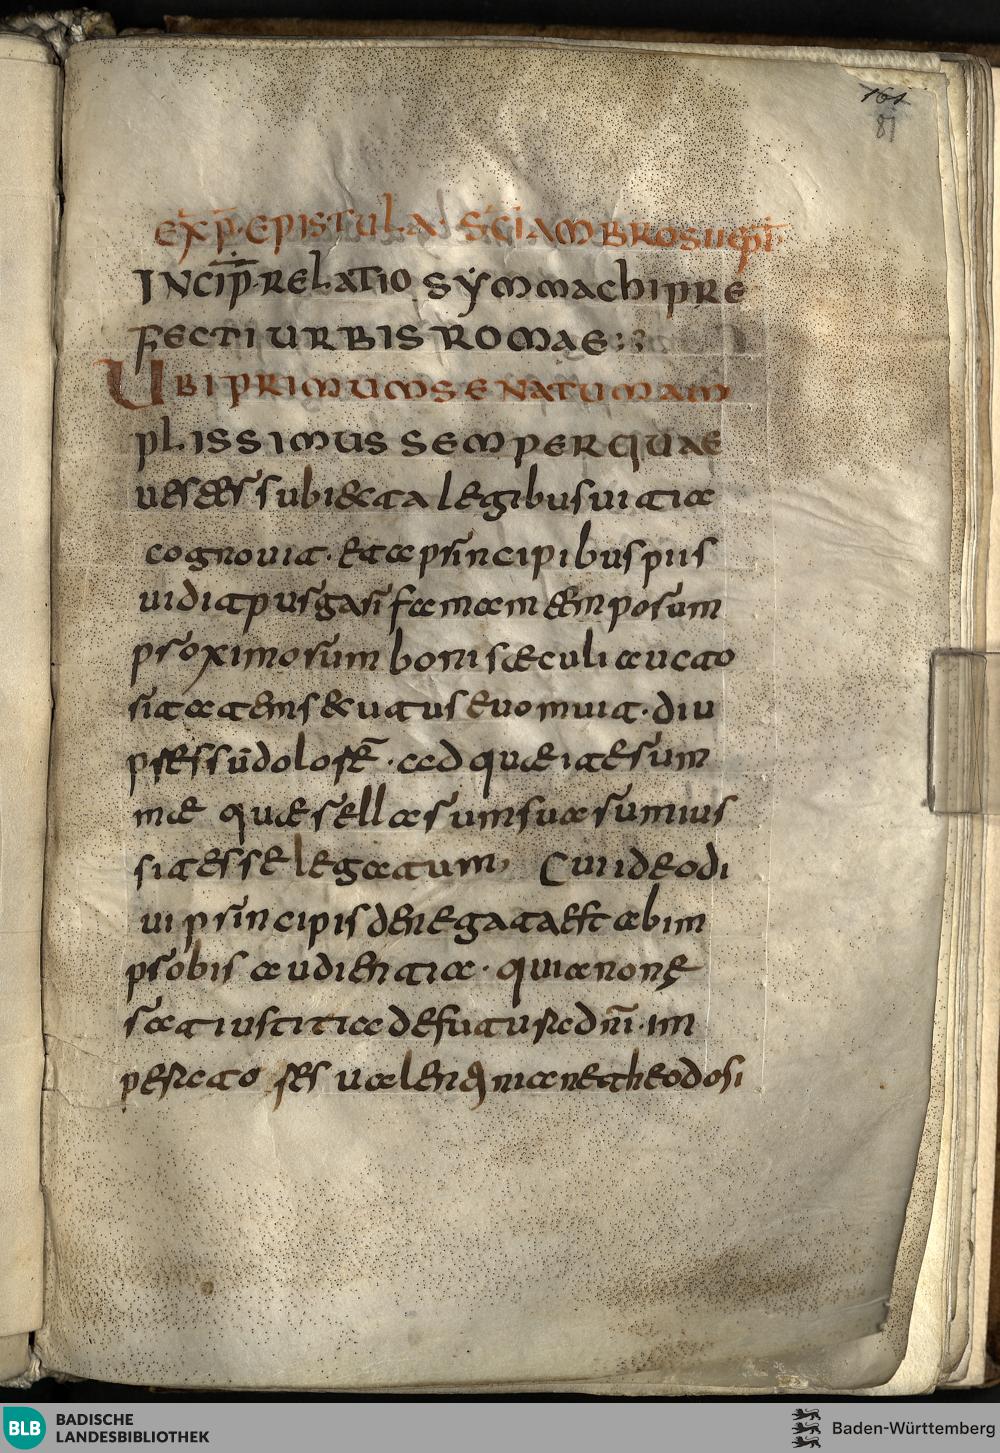 161
81
EXP̄· EPISTULA· S̄C̄I AMBROSII EP̄I·
INCIP̄· RELATIO SYMMACHI PRE
FECTI URBIS ROMAE
UBI PRIMUM SENATUM AM
PLISSIMUS SEMPERQUAE
uester subiecta legibus uitia
cognouit· et a principibus piis
uidit purgari famam temporum
proximorum boni saeculi aucto
ritatem secutus euomuit· diu
pressū dolorē· ad quae iterum
me quaerellarum suarum ius
sit esse legatum, Cui ideo di
ui principis denegata est ab im
probis audientia· quia non e
rat iustitia defutura dn̄i· im
peratores ualentiniane theodosi
BLB BADISCHE
LANDESBIBLIOTHEK
Baden-Württemberg